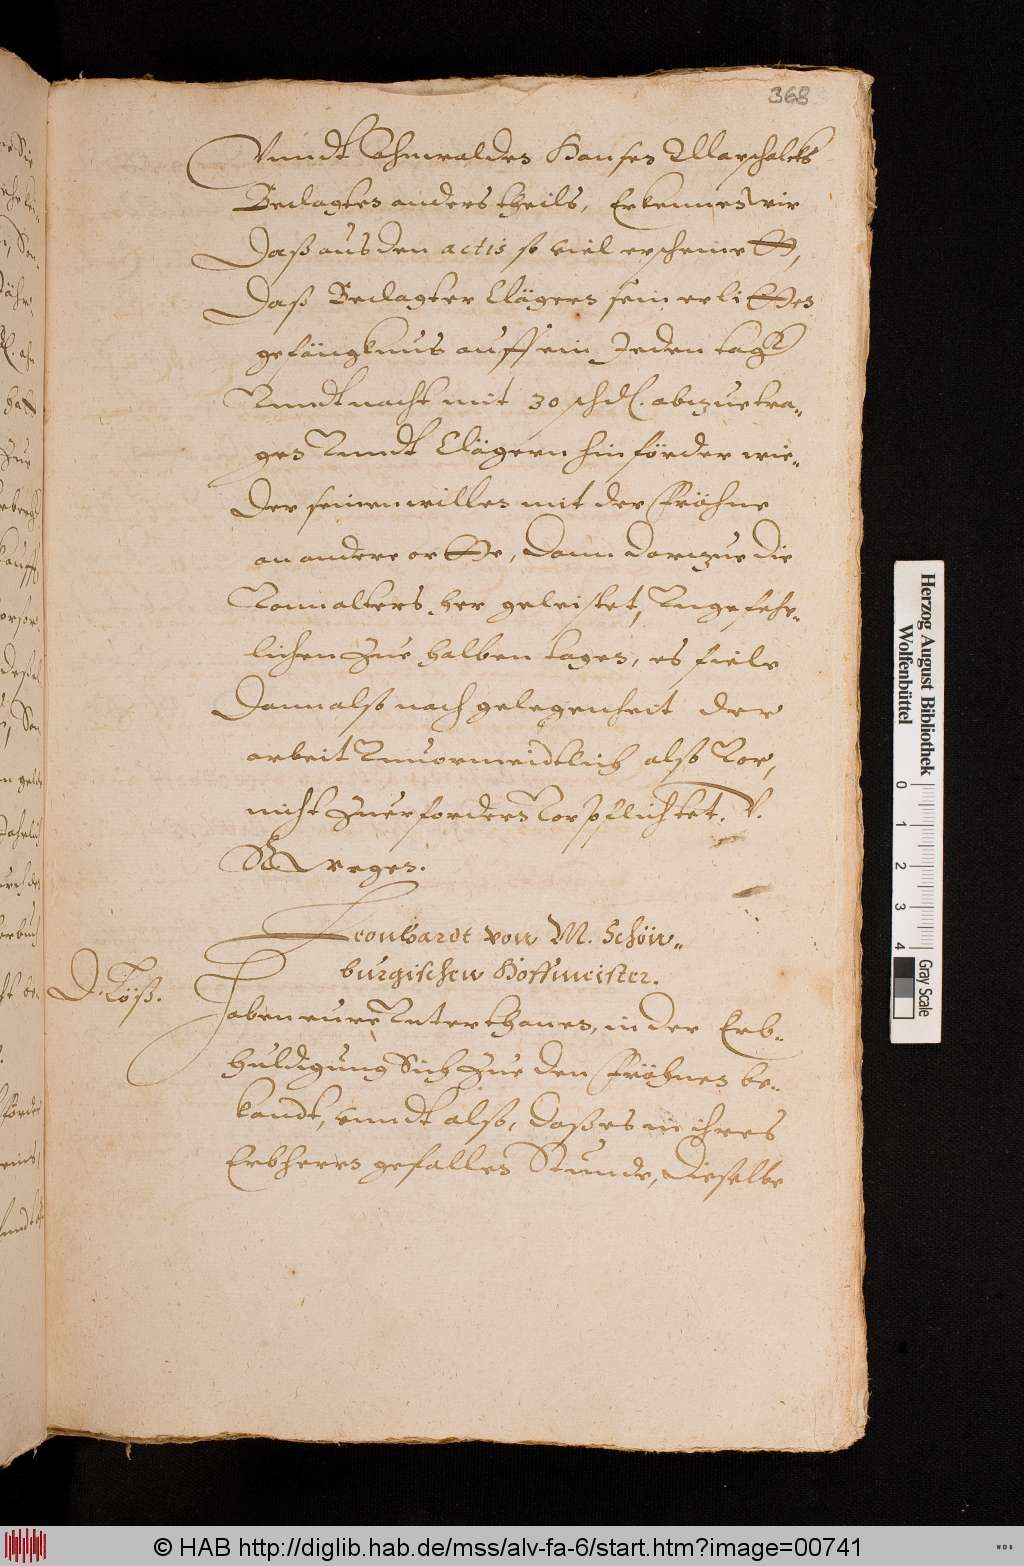 368
Vnndt Ahnwaldes Hansen Marschalcks
Beclagten anders theils, Erkennen wir
Daß aus den actis so viel erscheinett,
Daß Beclagter Clägern sein erlittes
gefängknus auff ein Jeden tagk
Vnndt nacht mit 30 schdl. abzuetra-
gen Vnndt Clägern hinförder wie-
der seinen willen mit der Fröhne
an andere ortte, dann darzue die
Vonn alters her geleistet, Vngefehr-
lichen zue halben tagen, es fiele
Dann also nach gelegenheit der
arbeit Vnuormeidtlich also Vor,
nicht zuerfordern Vorpflichtet. V.
R. Wegen.
Leonhardt von M. Schön-
burgischen Hoffmeister.
D. Töß.
Haben eure Vnterthanen, in der Erb-
huldigung Sich zue den Fröhnen be-
kandt, vnndt also, daß es in ihres
Erbherrn gefallen Stunde, dieselbe
Herzog August Bibliothek
Wolfenbüttel
0 1 2 3 4
Gray Scale
© HAB http://diglib.hab.de/mss/alv-fa-6/start.htm?image=00741